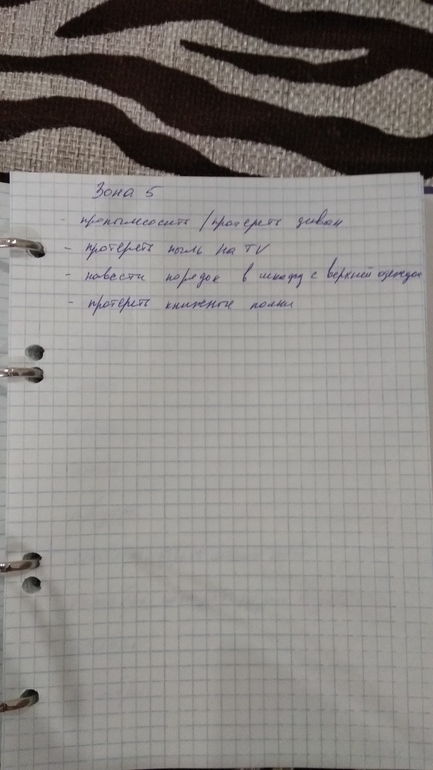 Зона 5
- пропылесосить / протереть диван
- протереть пыль на TV
- навести порядок в шкафу с верхней одеждой
- протереть книжные полки